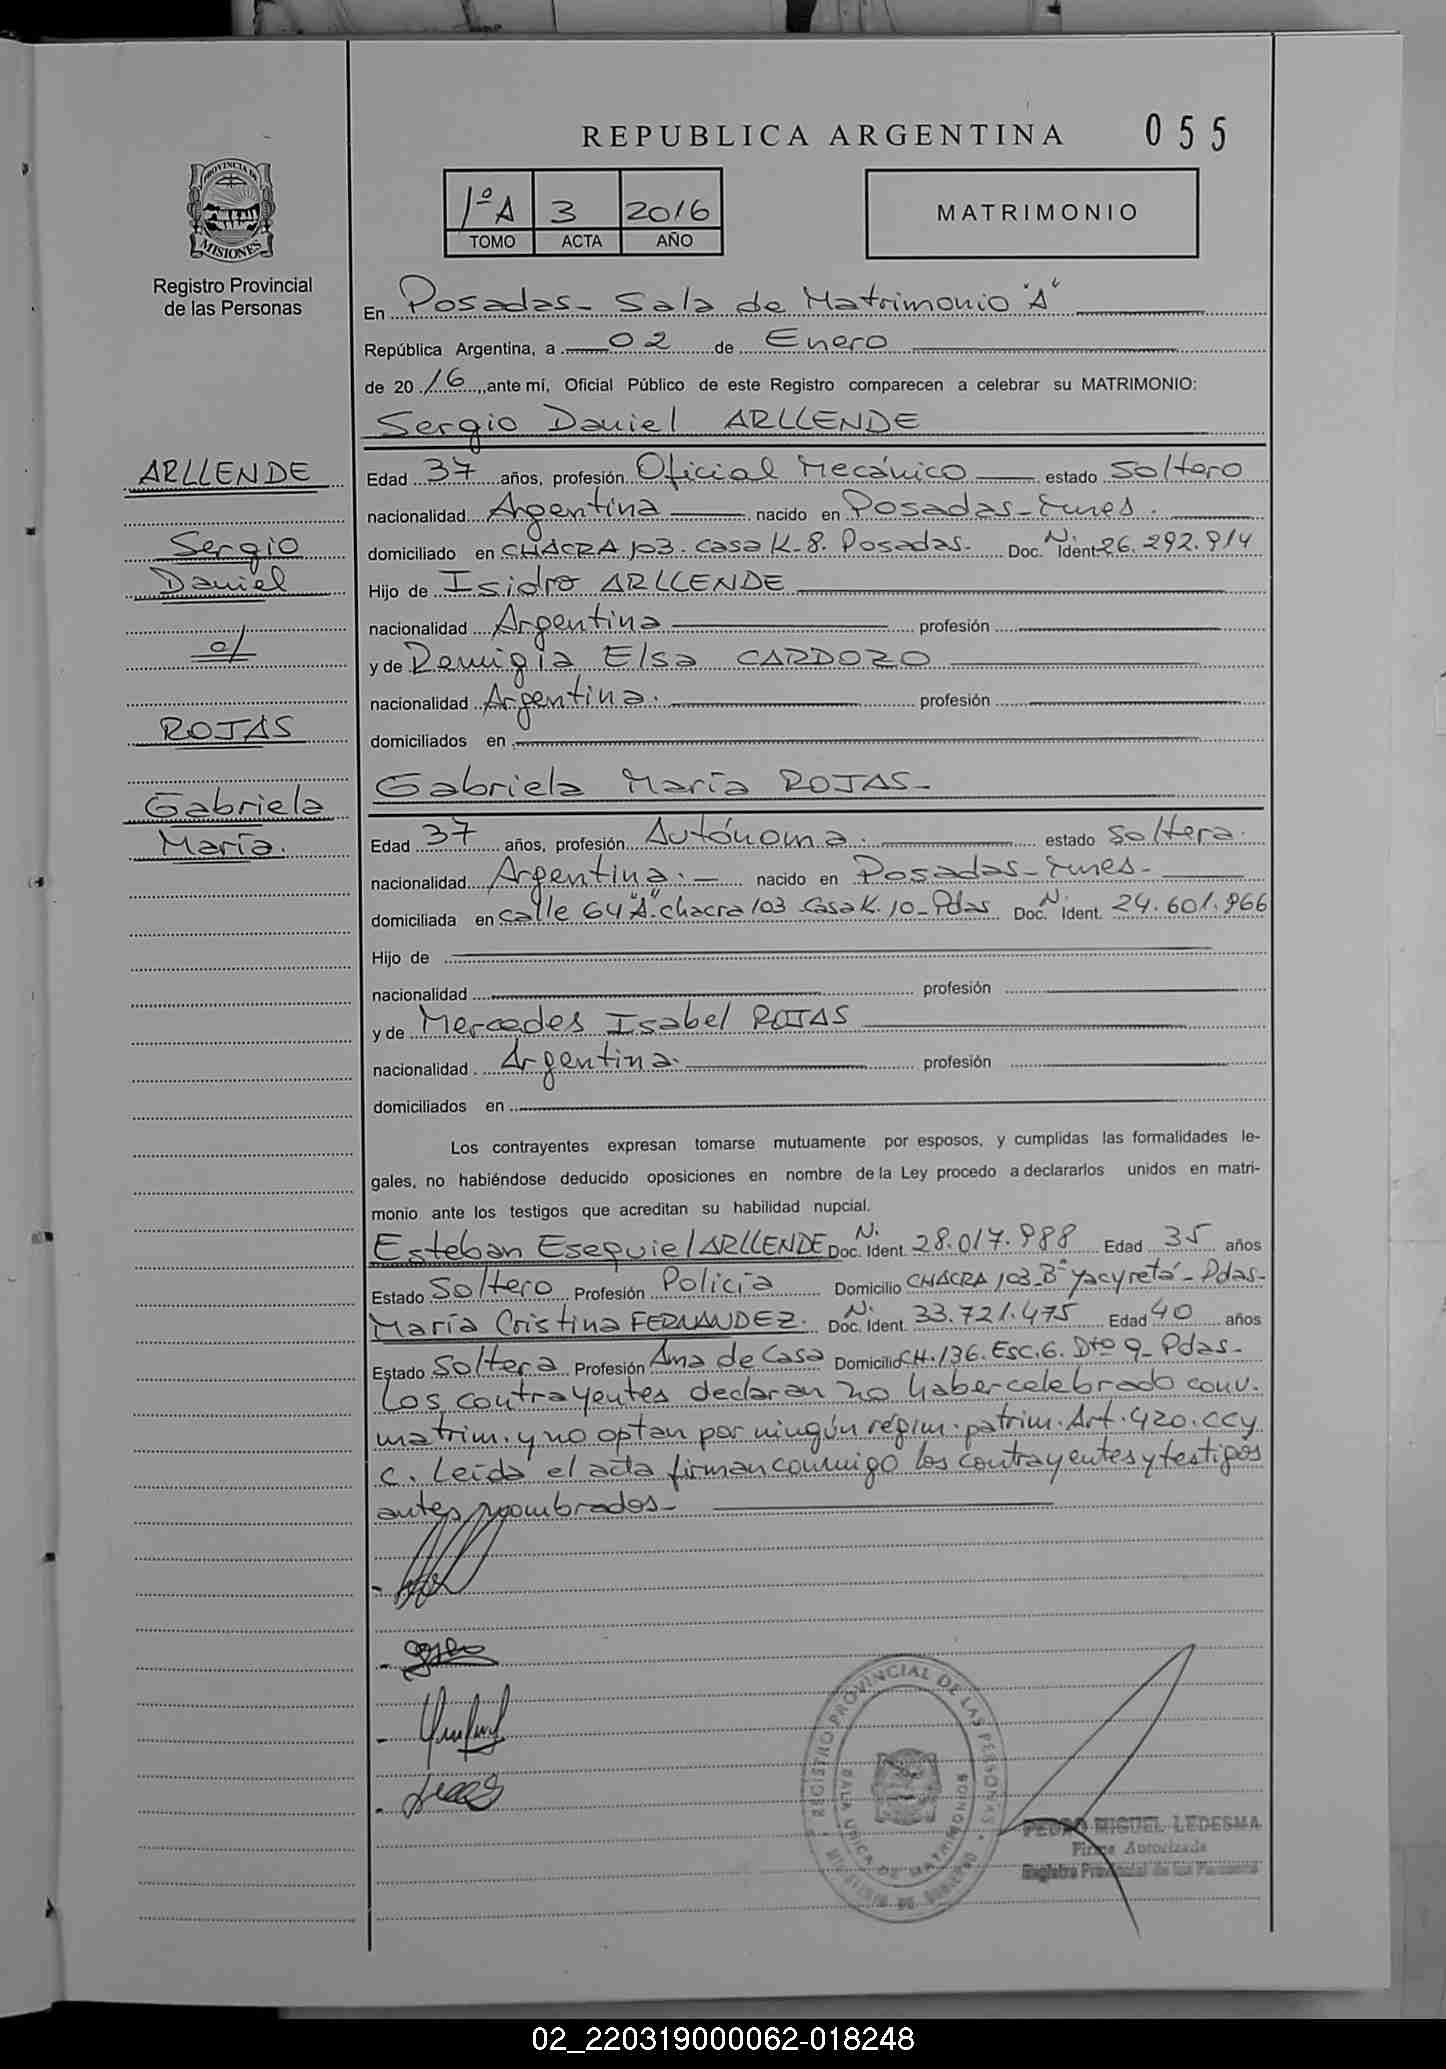 REPUBLICA ARGENTINA 055
PROVINCIA DE
MISIONES
Registro Provincial
de las Personas
1º A 3 2016
TOMO ACTA AÑO
MATRIMONIO
En Posadas - Sala de Matrimonio "A"
República Argentina, a 02 de Enero
de 2016, ante mí, Oficial Público de este Registro comparecen a celebrar su MATRIMONIO:
Sergio Daniel ARLLENDE
ARLLENDE
Sergio
Daniel
c/
ROJAS
Gabriela
María.
Edad 37 años, profesión Oficial Mecánico estado Soltero
nacionalidad Argentina nacido en Posadas - Mnes.
domiciliado en CHACRA 103. Casa K-8. Posadas. Doc. N. Ident 26.292.914
Hijo de Isidro ARLLENDE
nacionalidad Argentina profesión
y de Remigia Elsa CARDOZO
nacionalidad Argentina. profesión
domiciliados en
Gabriela María ROJAS-
Edad 37 años, profesión Autónoma. estado Soltera.
nacionalidad Argentina.- nacido en Posadas - Mnes-
domiciliada en Calle 64 "A". Chacra 103 Casa K.10- Pdas Doc. N. Ident. 24.601.966
Hijo de
nacionalidad profesión
y de Mercedes Isabel ROJAS
nacionalidad Argentina. profesión
domiciliados en
Los contrayentes expresan tomarse mutuamente por esposos, y cumplidas las formalidades le-
gales, no habiéndose deducido oposiciones en nombre de la Ley procedo a declararlos unidos en matri-
monio ante los testigos que acreditan su habilidad nupcial.
Esteban Esequiel ARLLENDE Doc. N. Ident. 28.017.988 Edad 35 años
Estado Soltero Profesión Policía Domicilio CHACRA 103-Bº Yacyretá - Pdas-
María Cristina FERNANDEZ. Doc. N. Ident. 33.721.475 Edad 40 años
Estado Soltera Profesión Ama de Casa Domicilio CH.136. Esc.6. Dto 9- Pdas-
Los contrayentes declaran no haber celebrado conv.
matrim. y no optan por ningún régim. patrim. Art. 420. CCy
C. Leída el acta firman conmigo los contrayentes y testigos
antes nombrados-
REGISTRO PROVINCIAL DE LAS PERSONAS
SALA UNICA DE MATRIMONIOS
MINISTERIO DE GOBIERNO
PEDRO MIGUEL LEDESMA
Firma Autorizada
Registro Provincial de las Personas
02_220319000062-018248